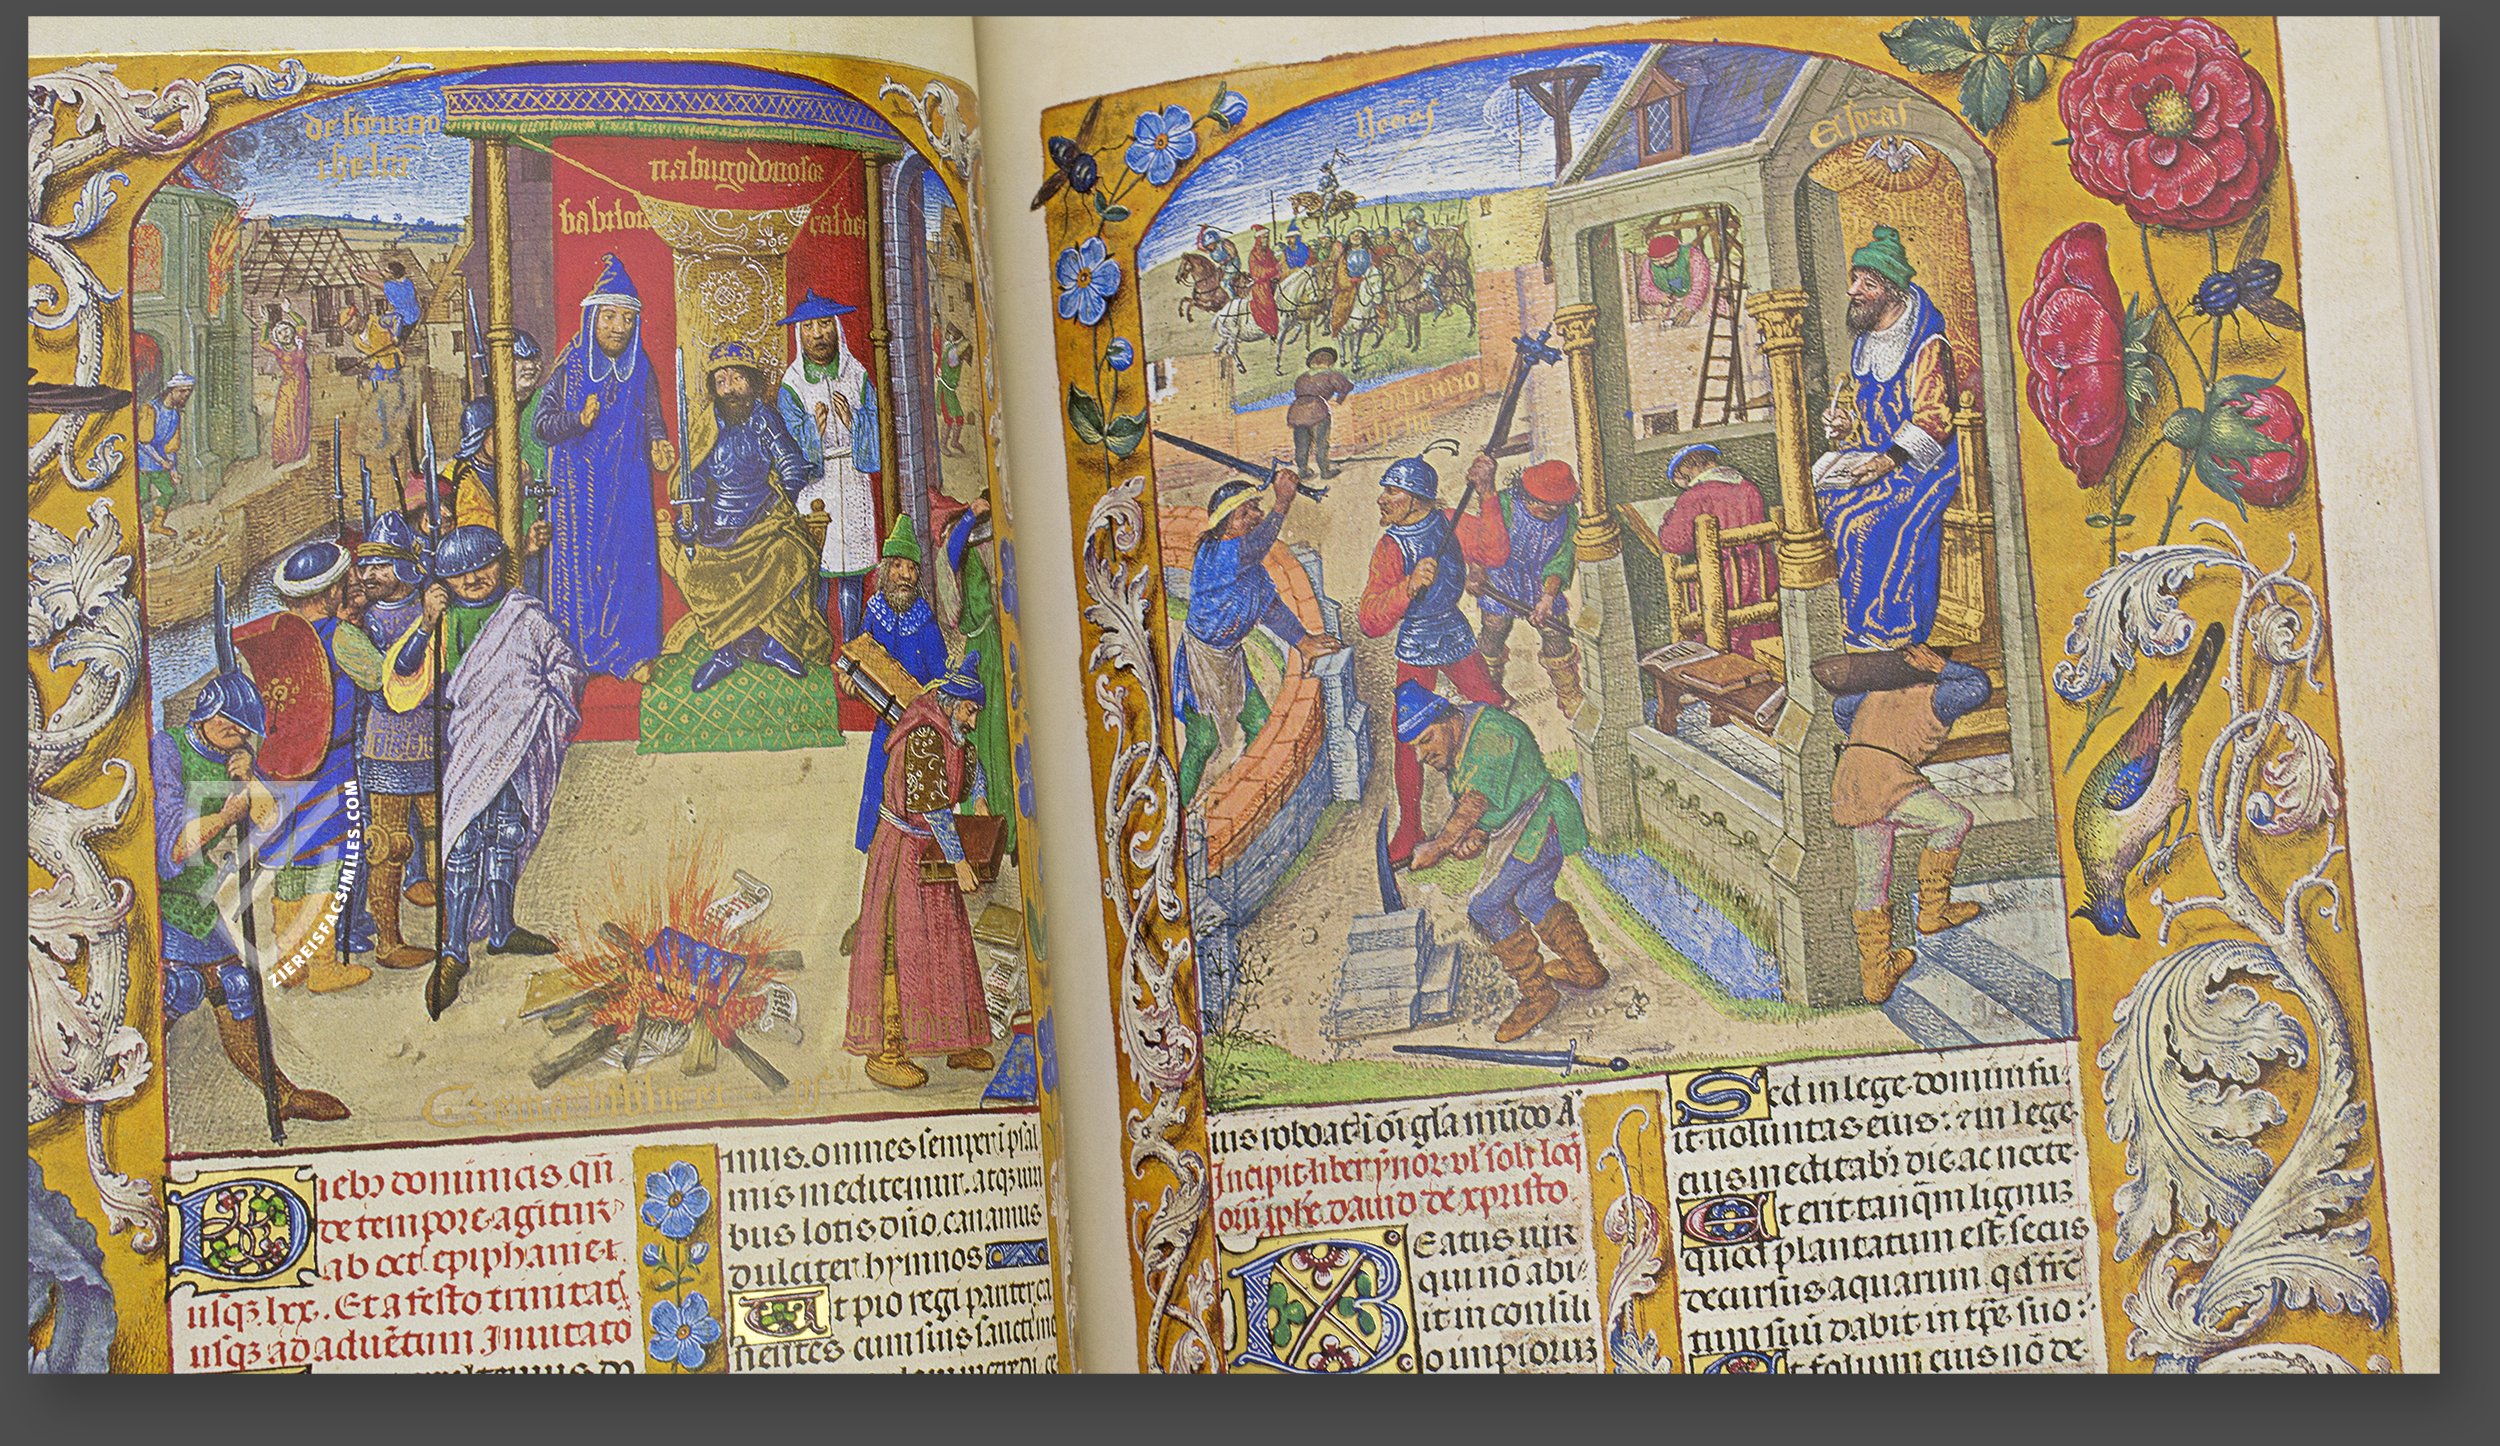 destructio
iherlm̄
nabugodonosor
babilon
caldei
ZIEREISFACSIMILES.COM
Dieb; dominicis. qn̄
de tempore agitur
ab oct̄ epiphanie
usq; lxx. Et a festo trinitat̄
usq; ad aduētum Inuitato
mus. omnes semper i psal
mis meditemur. atq; uiri
bus totis dn̄o. canamus
dulciter hymnos
Ut pio regi pariter ca
nentes cum suis sanctis me
Neemias
Esdras
ius roboat̄ i oī gl̄a mūdo A
Incipit liber ymnor̄ vl̄ solilo
orū pphē. dauid de xpristo
Beatus uir
qui nō abi
it in consili
o impioruz
Sed in lege domini fu
it uoluntas eius: 7 in lege
eius meditab̄r die ac nocte
Et erit tanq̄m lignuz
quod plantatum est secus
decursus aquarum. qd̄ fruc̄
tum suū dabit in tpe suo:
Et folium eius nō de